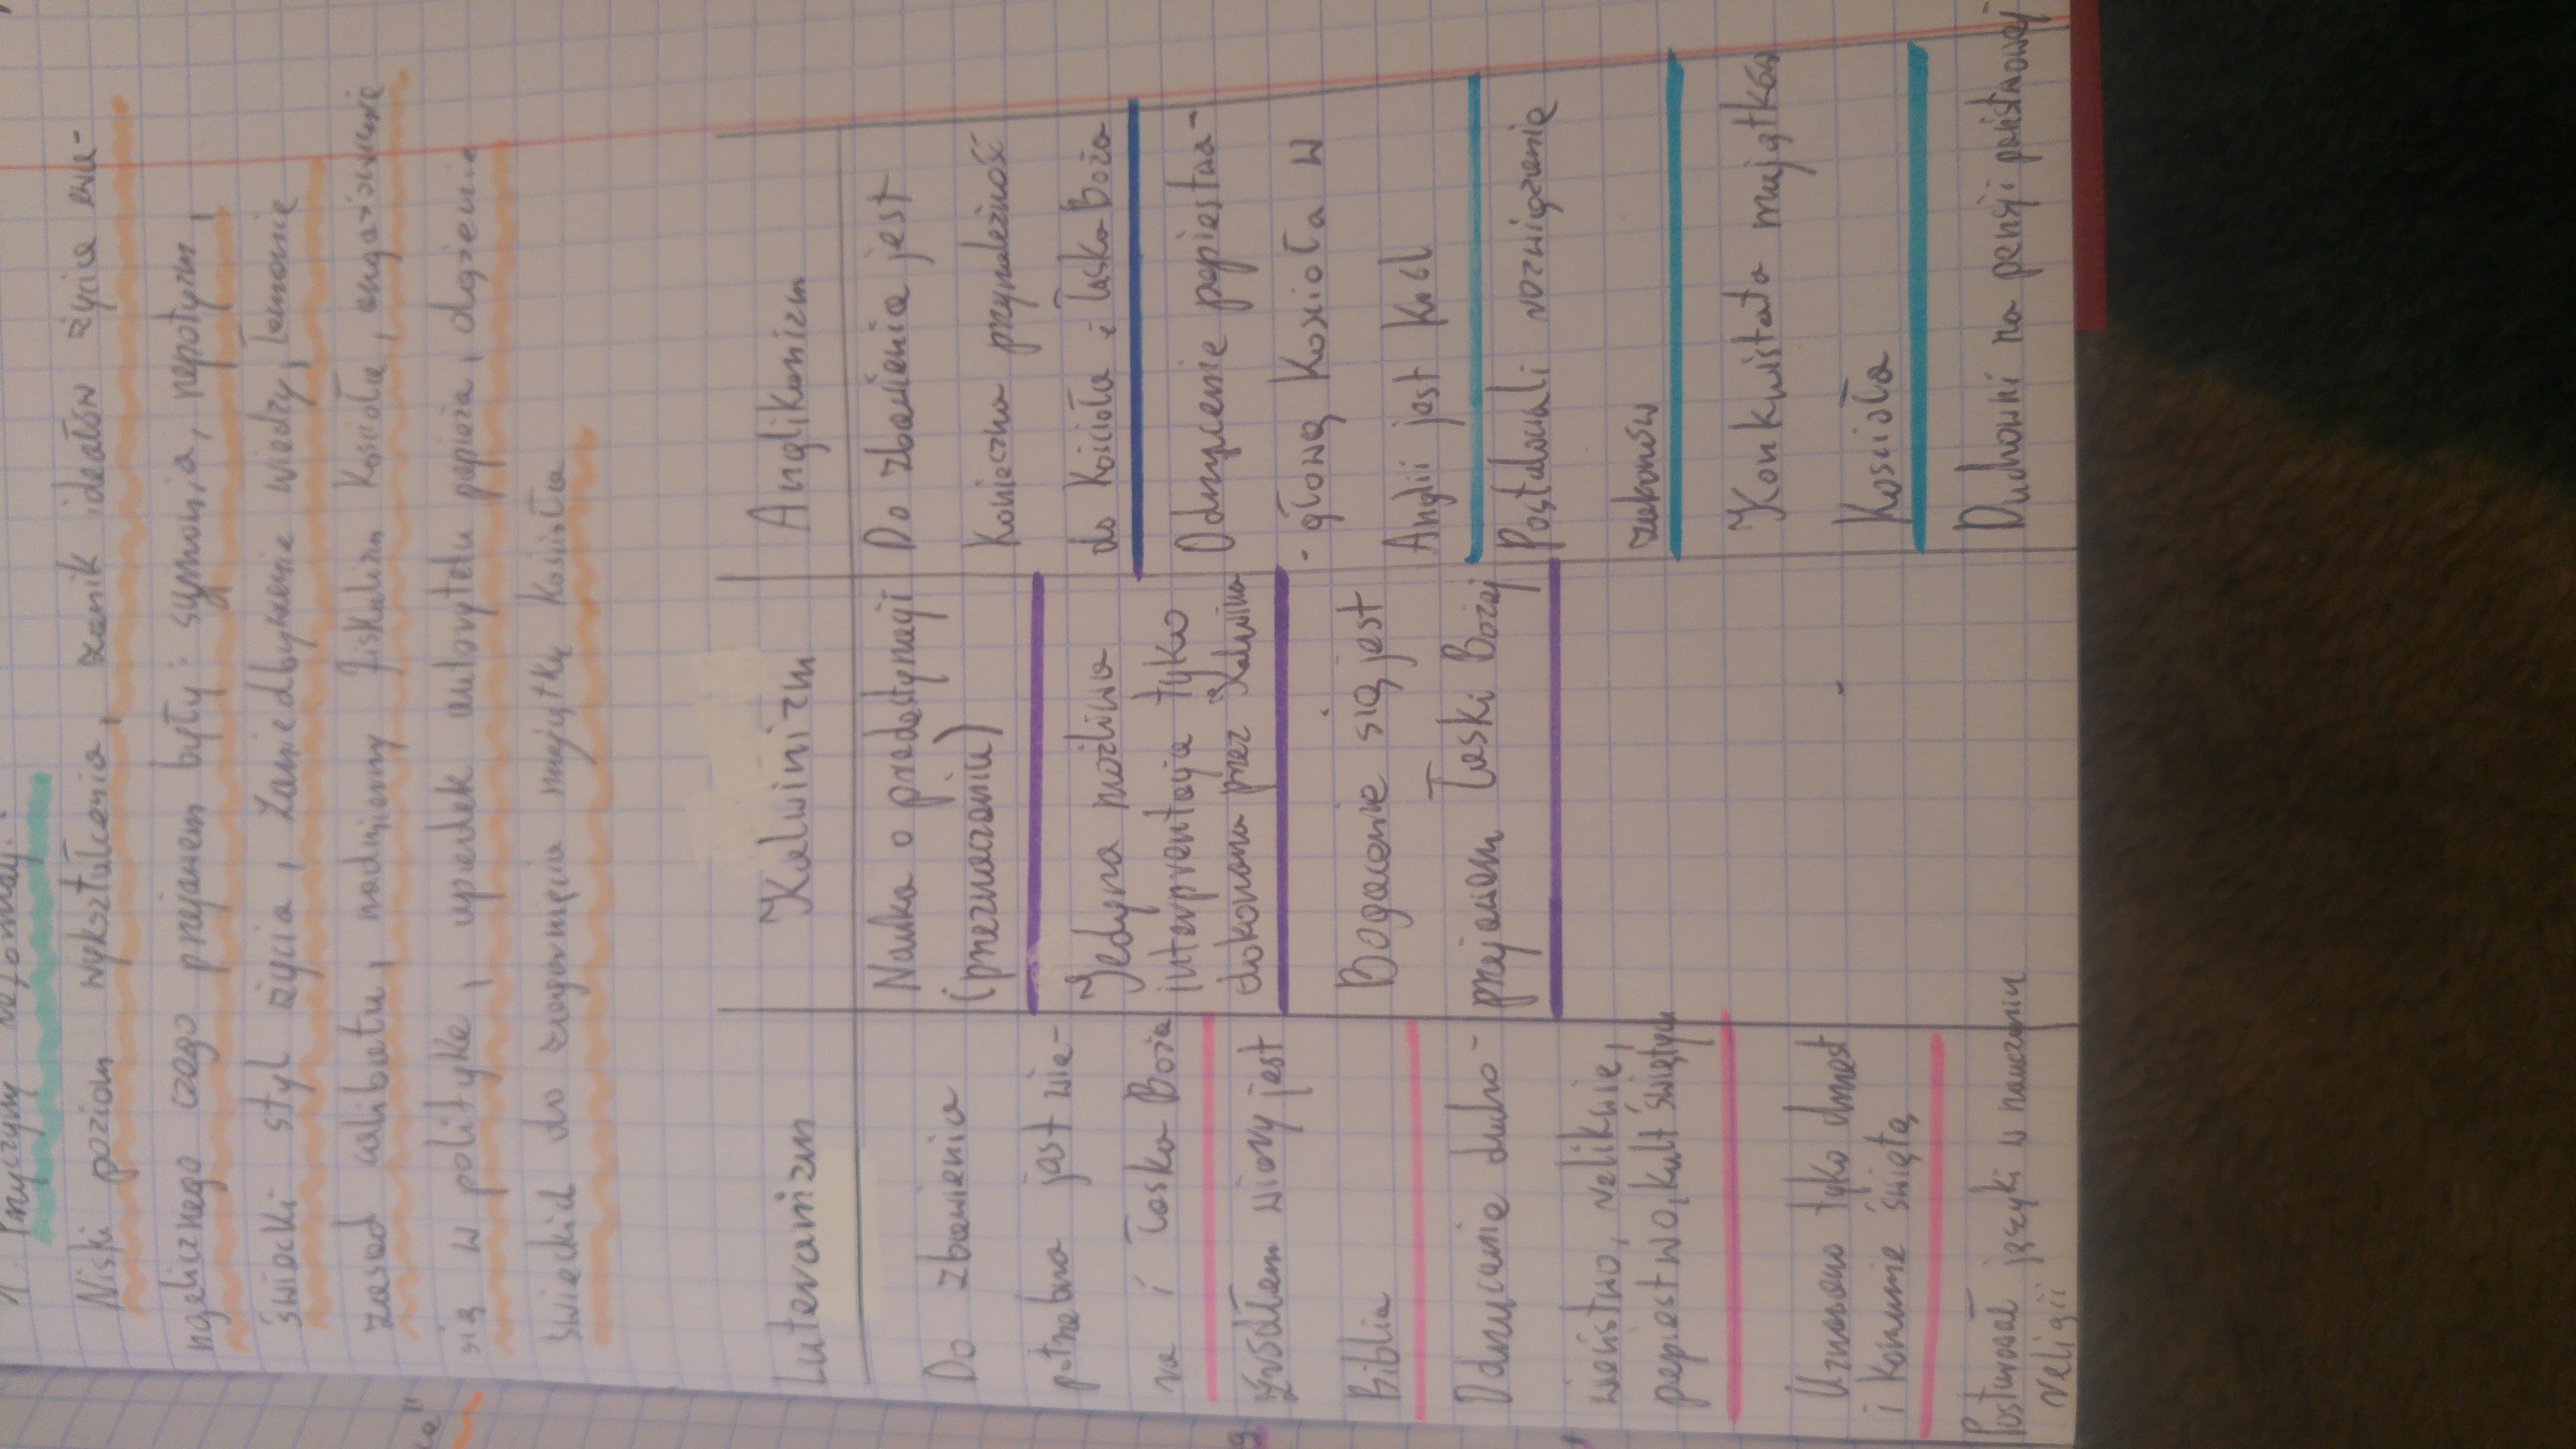 1. Przyczyny reformacji:
Niski poziom wykształcenia, zanik ideałów życia ewa-
ngelicznego czego przejawem były: symonia, nepotyzm,
świecki styl życia, zaniedbywanie wiedzy, łamanie
zasad celibatu, nadmierny fiskalizm Kościoła, angażowanie
się w politykę, upadek autorytetu papieża, dążenie
świeckich do zagarnięcia majątku kościoła
Luteranizm
Do zbawienia
potrzebna jest wia-
ra i łaska Boża
Źródłem wiary jest
Biblia
Odrzucenie ducho-
wieństwo, relikwie,
papiestwo, kult świętych
Uznawano tyko chrzest
i komunie świętą
Postulował języki w nauczaniu
religii
Kalwinizm
Nauka o predestynacji
(przeznaczeniu)
Jedyna możliwa
interpretacja tyko
dokonana przez Kalwina
Bogacenie się jest
przejawem łaski Bożej
Anglikanizm
Do zbawienia jest
konieczna przynależność
do Kościoła i łaska Boża
Odrzucenie papiestwa-
- głową Kosioła w
Anglii jest król
Postulowali rozwiązanie
zakonów
Konkwistata majątków
Kosioła
Duchowni na pensji państwowej